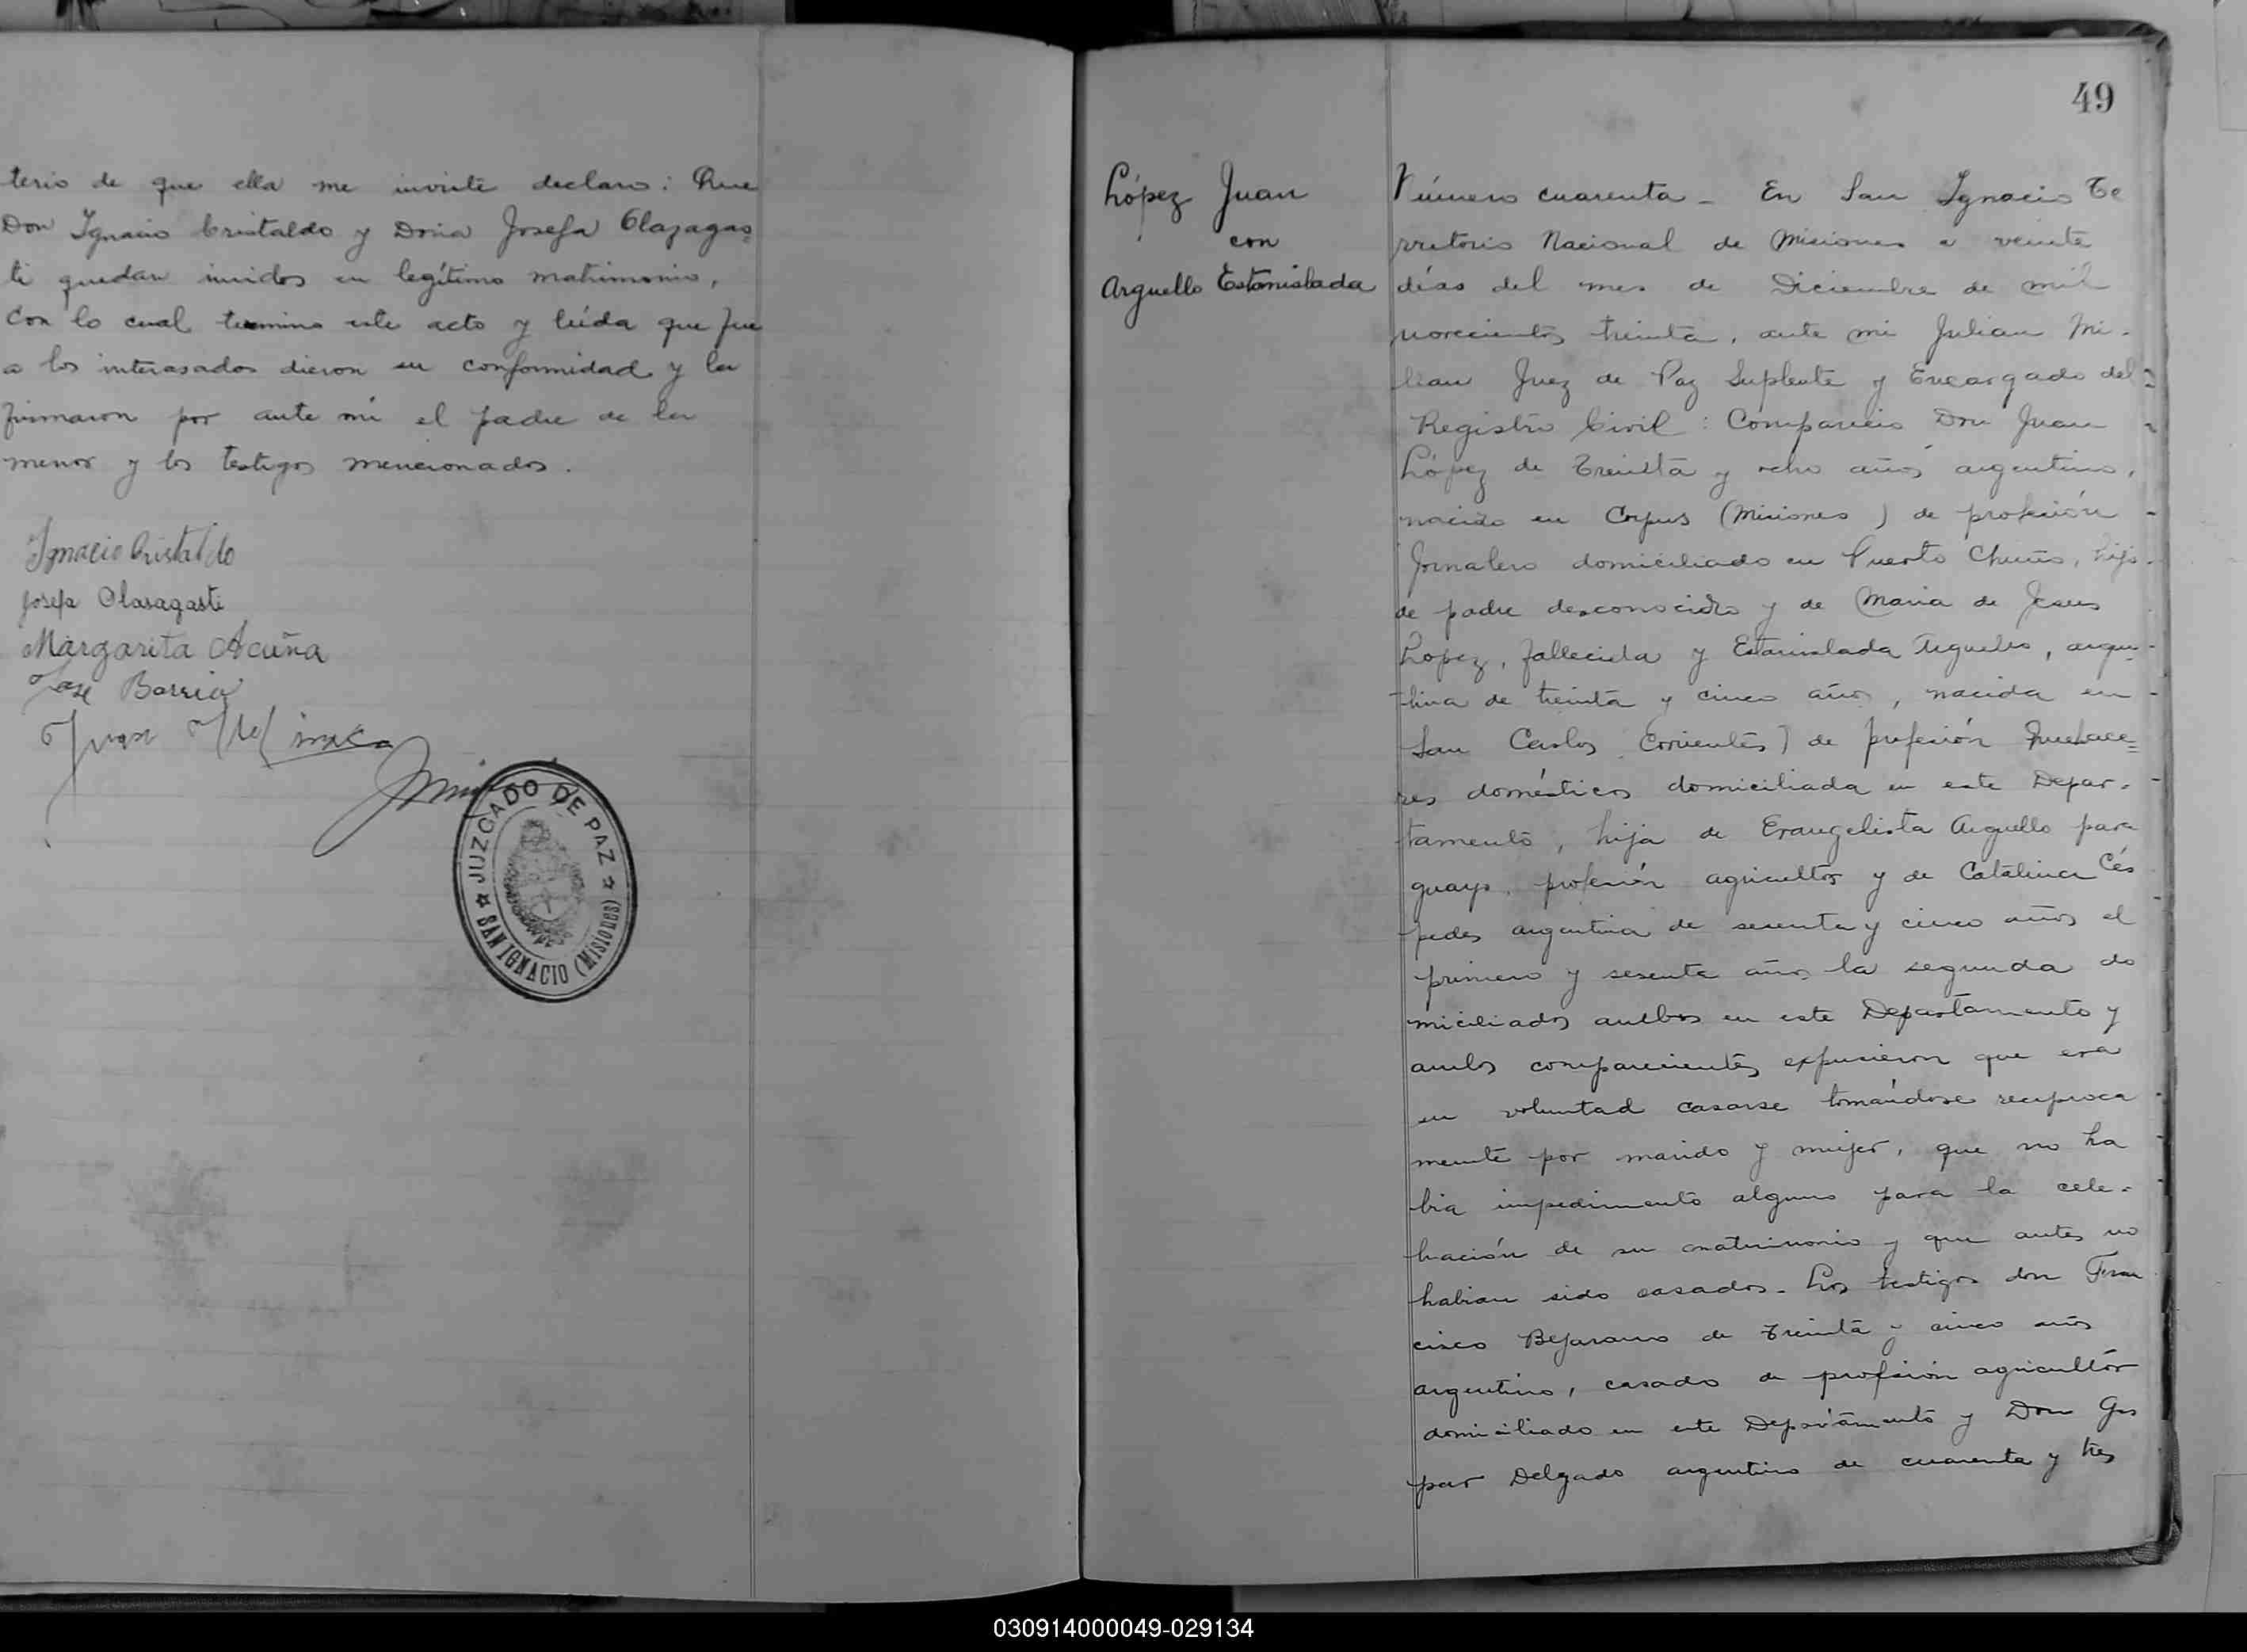 terio de que ella me inviste declaro: Que
Don Ignacio Cristaldo y Doña Josefa Olazagas=
ti quedan unidos en legítimo matrimonio,
Con lo cual termino este acto y leída que fue
a los interasados dieron su conformidad y la
firmaron por ante mí el padre de la
menor y los testigos mencionados.
Ignacio Cristaldo
Josefa Olasagasti
Margarita Acuña
José Barria
Juan
JUZGADO DE PAZ
SAN IGNACIO (MISIONES)
49
López Juan
con
Arguello Estanislada
Número cuarenta - En San Ignacio Te
rritorio Nacional de Misiones a veinte
días del mes de Diciembre de mil
novecientos treinta, ante mi Julian Mi-
lian Juez de Paz Suplente y Encargado del
Registro Civil: Comparecio Don Juan
López de Treinta y ocho años argentino,
nacido en Corpus (Misiones) de profesión
Jornalero domiciliado en Puerto Chuño, hijo
de padre desconocido y de Maria de Jesus
Lopez, fallecida y Estanislada Arguello, argen-
tina de treinta y cinco años, nacida en
San Carlos Corrientes) de profesión Quehace=
res domésticos domiciliada en este Depar-
tamento, hija de Evangelista Arguello para
guayo, profesión agricultor y de Catalina Cés
pedes argentina de sesenta y cinco años el
primero y sesenta años la segunda do
miciliados ambos en este Departamento y
ambos comparecientes expusieron que era
su voluntad casarse tomándose reciproca
mente por marido y mujer, que no ha
bia impedimento alguno para la cele-
bración de su matrimonio y que antes no
habian sido casados. Los testigos don Fran
cisco Bejarano de treinta y cinco años
argentino, casado de profesión agricultor
domiciliado en este Departamento y Don Gas
par Delgado argentino de cuarenta y tres
030914000049-029134